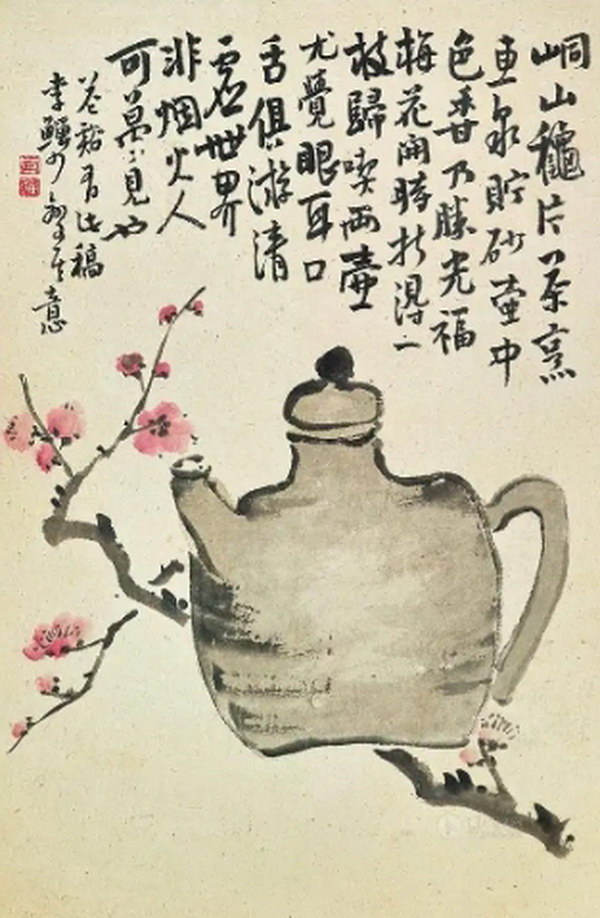 峒山穐片茶烹
惠泉貯砂壺中
色香乃勝光福
梅花開時折得一
枝歸喫兩壺
尤覺眼耳口
舌俱游清
虛世界
非烟火人
可夢見也
谿有此稿
李鱓少其意